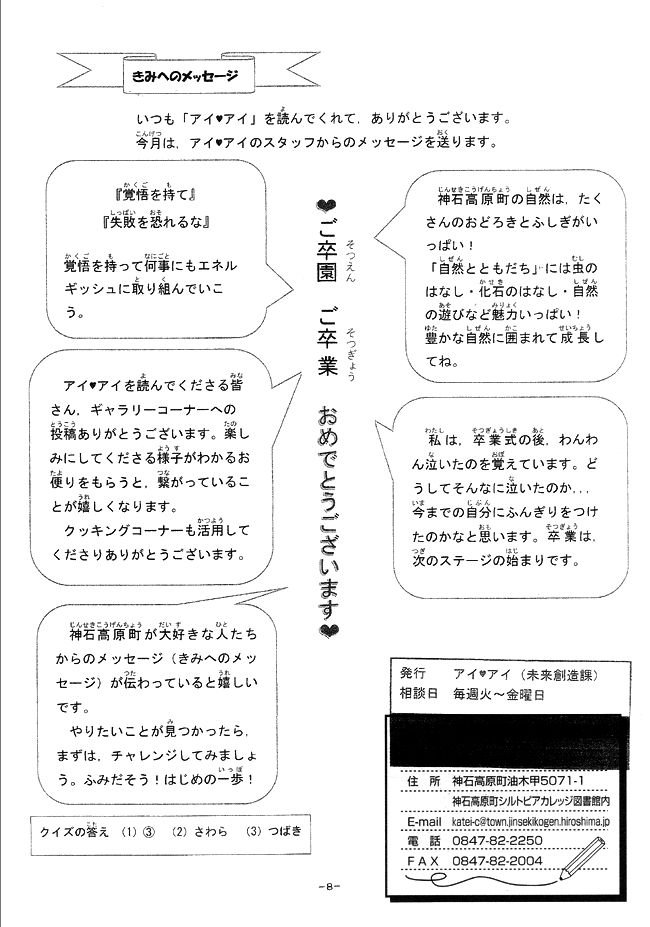 きみへのメッセージ
いつも「アイ♥アイ」を読んでくれて，ありがとうございます。
今月は，アイ♥アイのスタッフからのメッセージを送ります。
『覚悟を持て』
『失敗を恐れるな』
覚悟を持って何事にもエネル
ギッシュに取り組んでいこ
う。
アイ♥アイを読んでくださる皆
さん，ギャラリーコーナーへの
投稿ありがとうございます。楽し
みにしてくださる様子がわかるお
便りをもらうと，繋がっているこ
とが嬉しくなります。
クッキングコーナーも活用して
くださりありがとうございます。
神石高原町が大好きな人たち
からのメッセージ（きみへのメッ
セージ）が伝わっていると嬉しい
です。
やりたいことが見つかったら，
まずは，チャレンジしてみましょ
う。ふみだそう！はじめの一歩！
♥ご卒園　ご卒業　おめでとうございます♥
神石高原町の自然は，たく
さんのおどろきとふしぎがい
っぱい！
「自然とともだち」には虫の
はなし・化石のはなし・自然
の遊びなど魅力いっぱい！
豊かな自然に囲まれて成長し
てね。
私は，卒業式の後，わんわ
ん泣いたのを覚えています。ど
うしてそんなに泣いたのか...
今までの自分にふんぎりをつけ
たのかなと思います。卒業は，
次のステージの始まりです。
クイズの答え　(1) ③　(2) さわら　(3) つばき
発行　アイ♥アイ（未来創造課）
相談日　毎週火～金曜日
住所　神石高原町油木甲5071-1
神石高原町シルトピアカレッジ図書館内
E-mail　katei-c@town.jinsekikogen.hiroshima.jp
電話　0847-82-2250
FAX　0847-82-2004
-8-